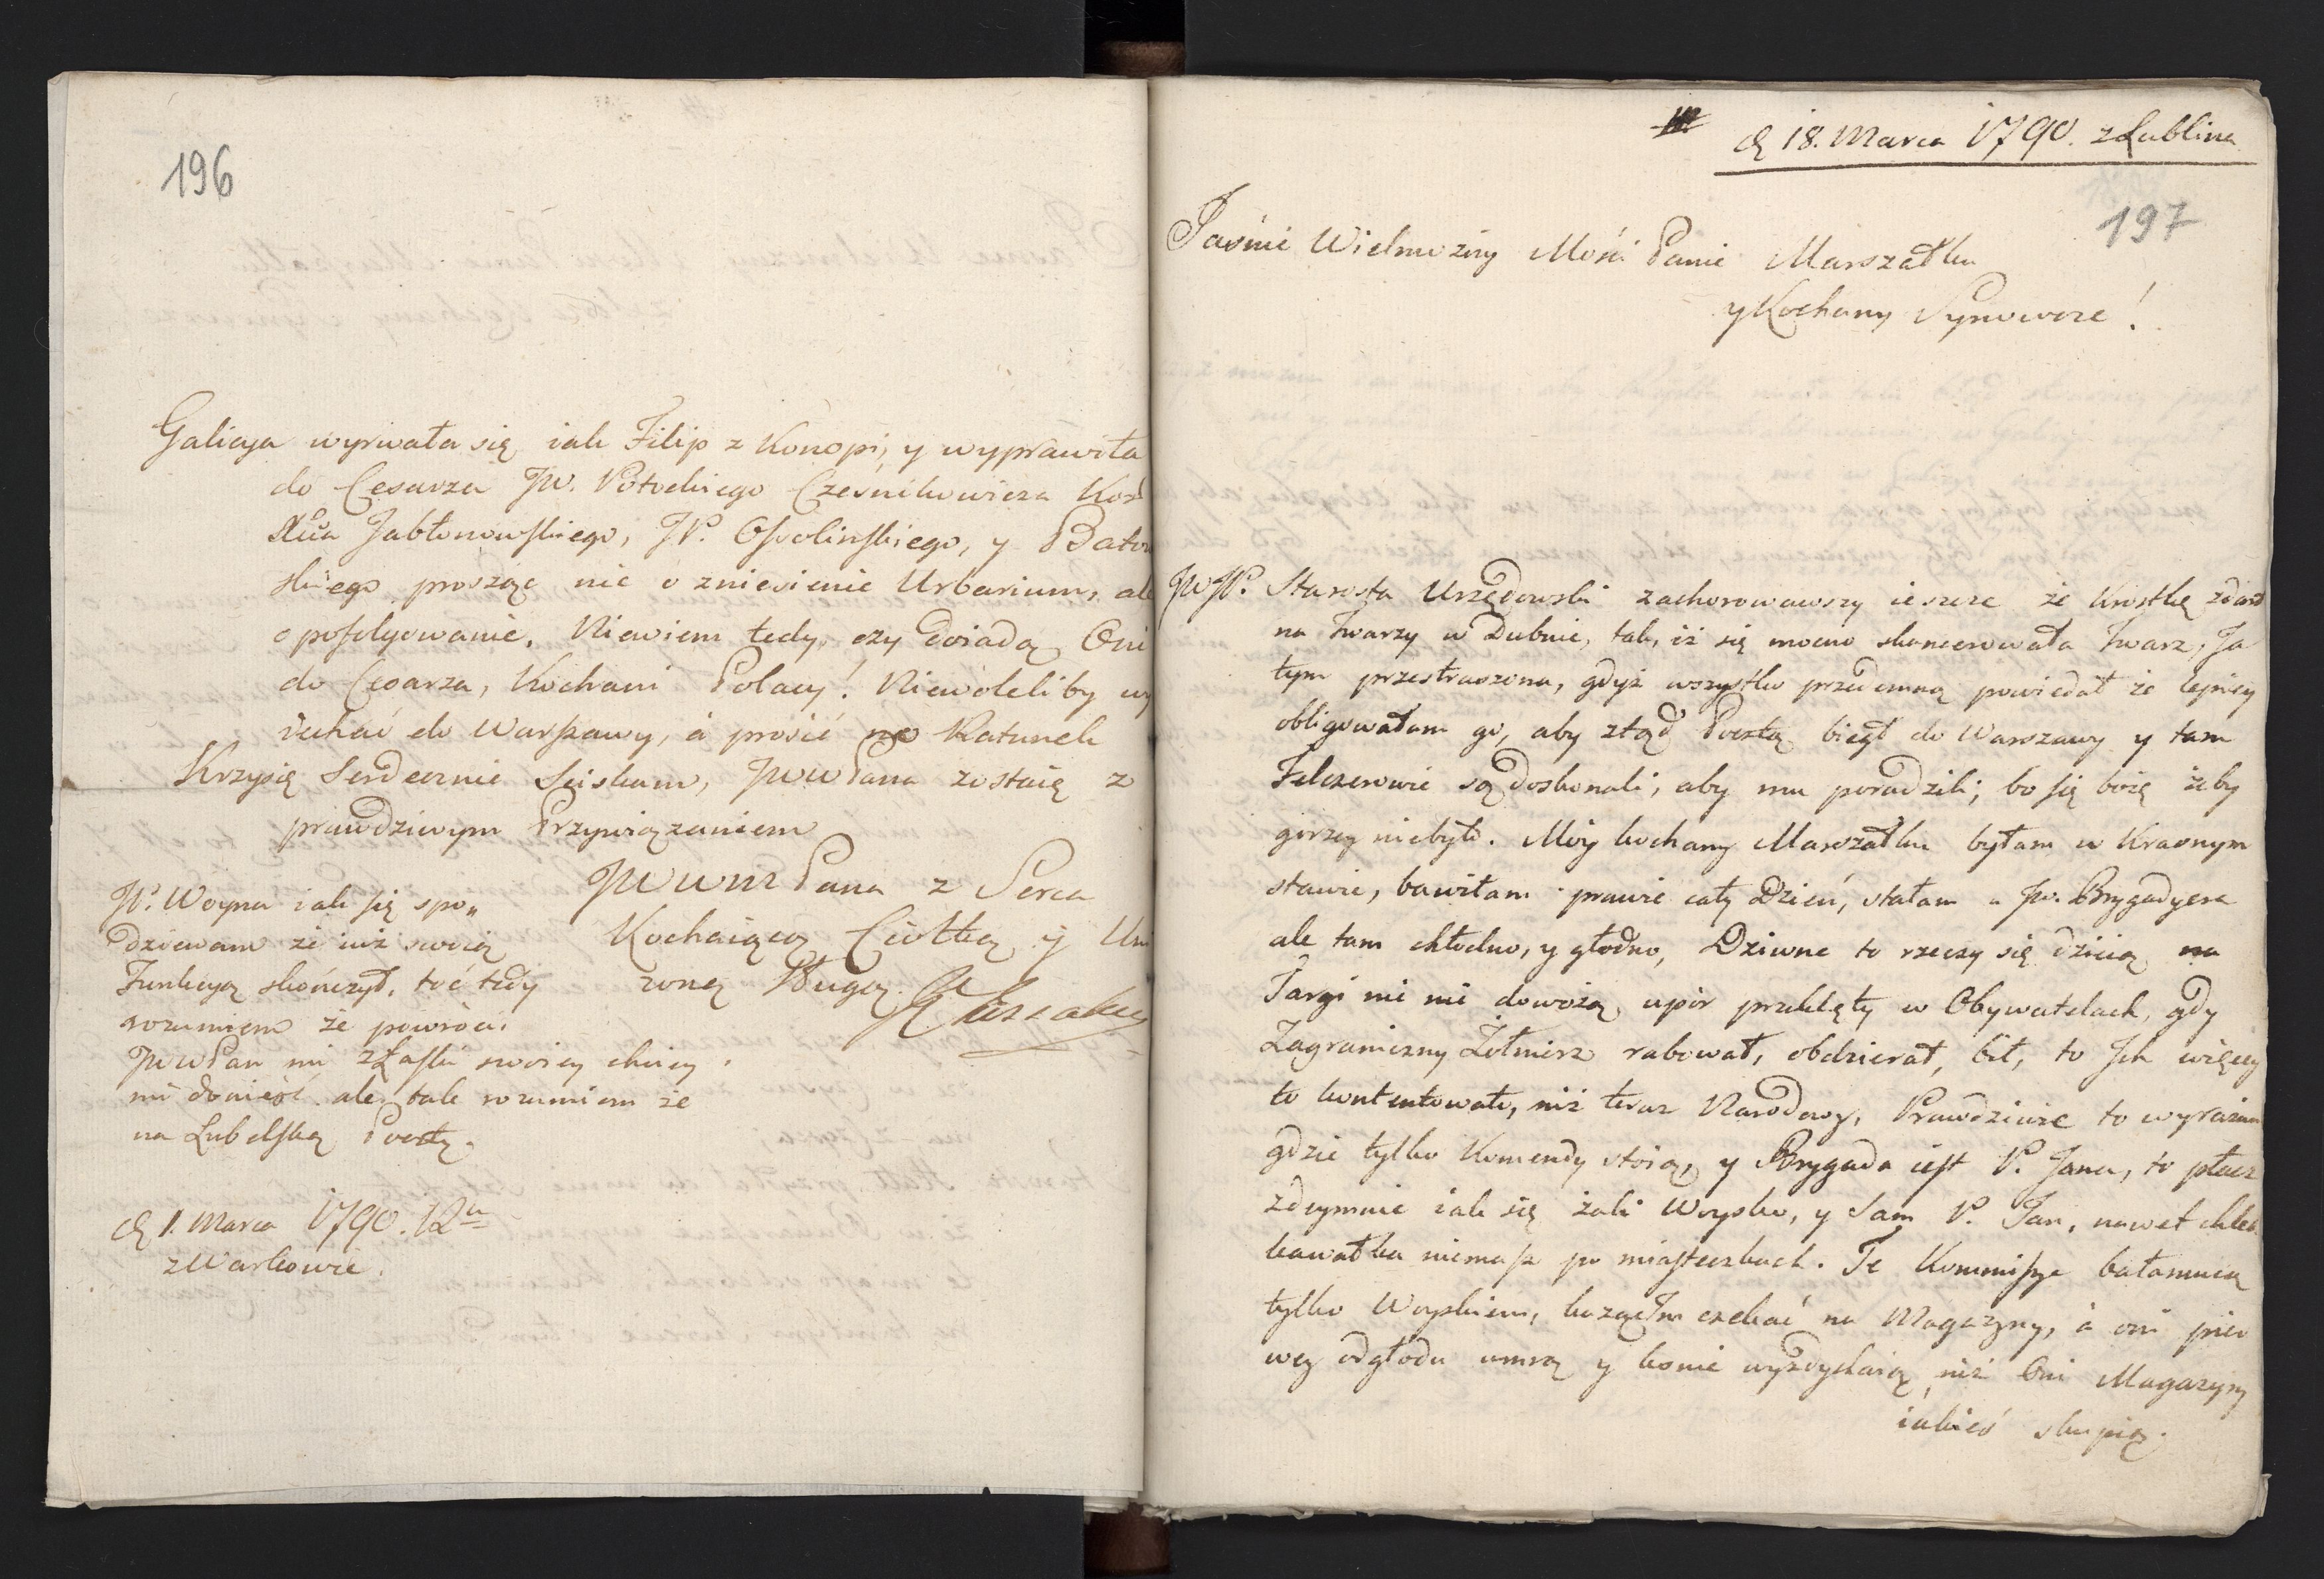 196
Galicya wyrwała się iak Filip z Konopi, y wyprawiła
do Cesarza JW. Potockiego Cześnikowicza Kor
Xcia Jabłonowskiego, JP. Ossolinskiego, y Bator
skiego prosząc nie o zniesienie Urbarium, ale
o pofolgowanie. Niewiem tedy, czy doiadą Oni
do Cesarza, Kochani Polacy! Niewoleliby wy
iechać do Warszawy, á prosić Ratunek
Krzysię Serdecznie Sciskam, JWWPana zostaię z
prawdziwym Przywiązaniem
JWWM Pana z Serca
Kochaiącą Ciotką y Uni
zoną Sługą
JP. Woyna iak się spo„
dziewam że iuż swoię
Funkcyą skończył, toć tedy
rozumiem że powróci.
JWWPan mi z Łaski swoiey chciey
mi donieść ale tak rozumiem że
na Lubelską Pocztę.
d. 1. Marca 1790. 12a
z Warkowic.
d. 18. Marca 1790. z Lublina
197
Jaśnie Wielmożny Mości Panie Marszałku
y Kochany Synowcze!
JWJP. Starosta Urzędowski zachorowawszy ieszcze że Krostkę zdarł
na Twarzy w Dubnie, tak, iż się mocno skancerowała Twarz, Ja
tym przestraszona, gdyż wszystko przedemną powiedał że lepiey
obligowałam go, aby ztąd Pocztą biegł do Warszawy y tam
Felczerowie są doskonali, aby mu poradzili; bo się boię żeby
gorzey niebyło. Móy kochany Marszałku byłam w Krasnym
stawie, bawiłam prawie cały Dzień, stałam u JW. Brygadyera
ale tam chłodno, y głodno, Dziwne to rzeczy się dzieią na
Targi nic nie dowożą, upór przeklęty w Obywatelach, gdy
Zagraniczny Żołnierz rabował, obdzierał, bił, to Jch więcey
to kontentowało, niż teraz Narodowy, Prawdziwie to wyrażam
gdzie tylko Komendy stoią, y Brygada iest P. Jana, to płacz
zdeymuie iak się żali Woysko, y Sam P. Jan, nawet chleba
kawałka niemasz po miasteczkach. Te Kommissye bałamucą
tylko Woyskiem, każąc Jm czekać na Magazyny, á oni pier
wey od głodu umrą y konie wyzdychaią, niż Oni Magazyny
iakieś skupią.